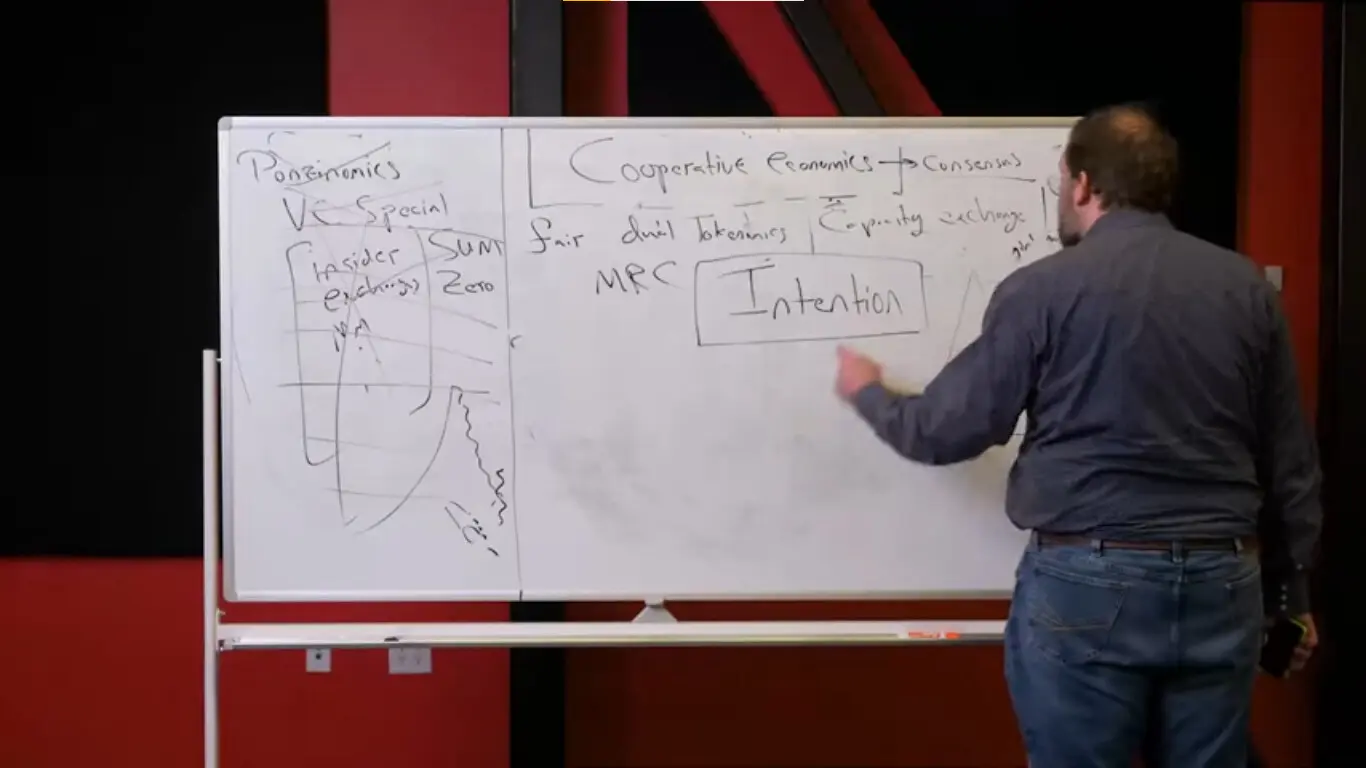 Ponzinomics
VC Special
insider
exchange
MM
SUM
Zero
Cooperative economics → Consensus
fair duel Tokenomics
Capacity exchange
MRC
Intention